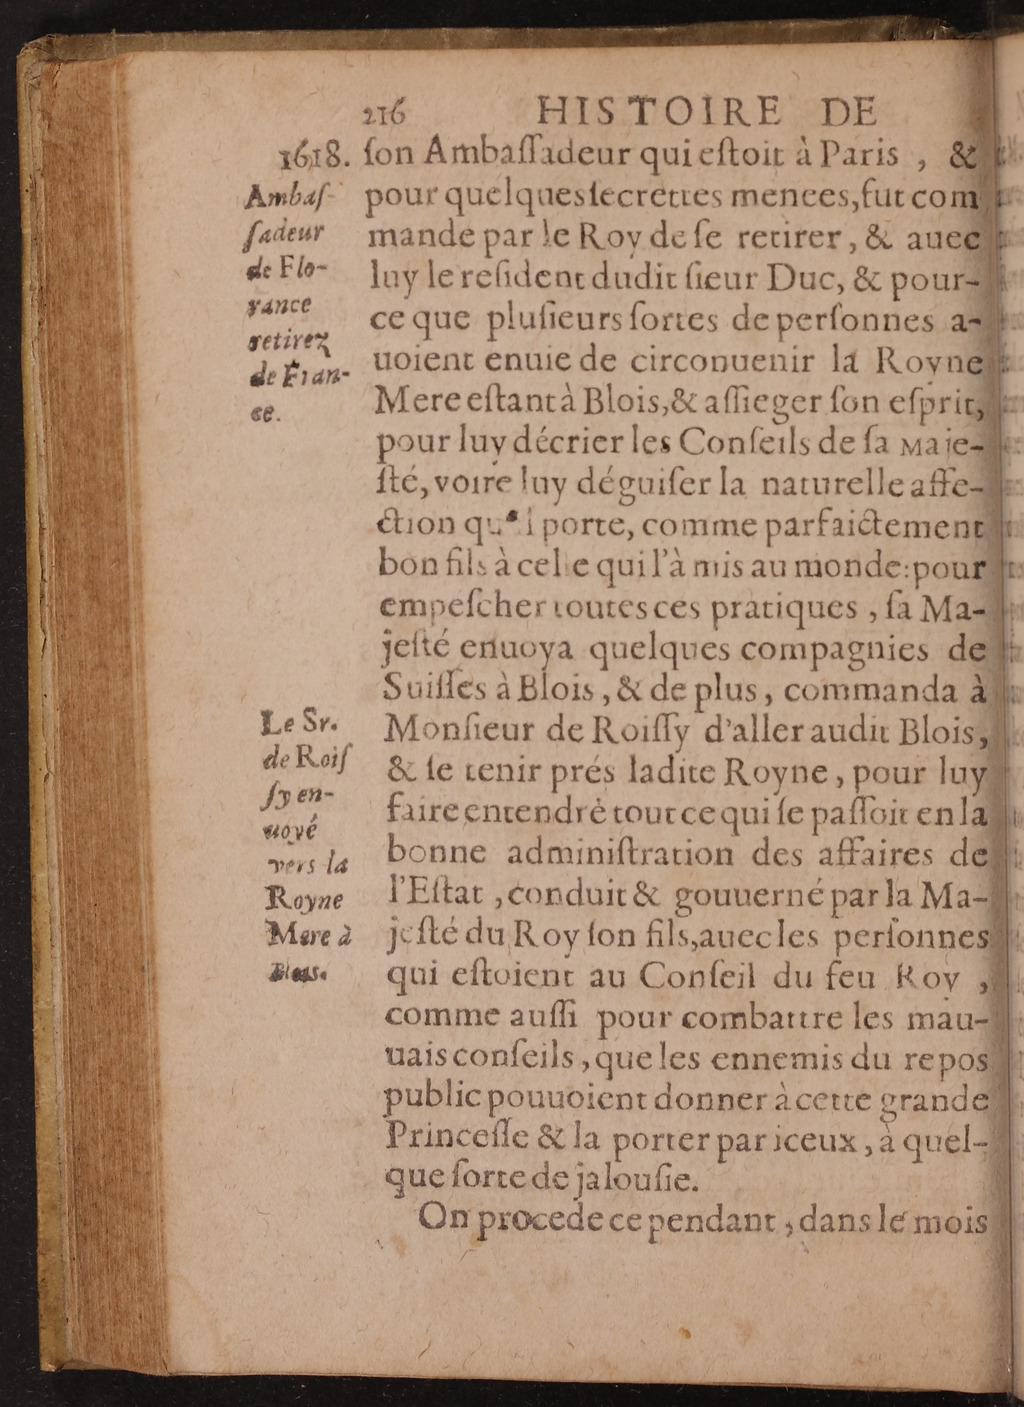 216 HISTOIRE DE
1618.
Ambaſ-
ſadeur
de Flo-
rance
retirez
de Fran-
ce.
ſon Ambaſſadeur qui eſtoit à Paris, &
pour quelques ſecrettes menees, fut com
mandé par le Roy de ſe retirer, & auec
luy le reſident dudit ſieur Duc, & pour-
ce que pluſieurs ſortes de perſonnes a-
uoient enuie de circonuenir la Royne
Mere eſtant à Blois, & aſſieger ſon eſprit,
pour luy décrier les Conſeils de ſa Maie-
ſté, voire luy déguiſer la naturelle affe-
ction qu'il porte, comme parfaictement
bon fils à celle qui l'à mis au monde: pour
empeſcher toutes ces pratiques, ſa Ma-
jeſté enuoya quelques compagnies de
Suiſſes à Blois, & de plus, commanda à
Le Sr.
de Roiſ
ſy en-
uoyé
vers la
Royne
Mere à
Blois.
Monſieur de Roiſſy d'aller audit Blois,
& ſe tenir prés ladite Royne, pour luy
faire entendré tout ce qui ſe paſſoit en la
bonne adminiſtration des affaires de
l'Eſtat, conduit & gouuerné par la Ma-
jeſté du Roy ſon fils, auec les perſonnes
qui eſtoient au Conſeil du feu Roy,
comme auſſi pour combattre les mau-
uais conſeils, que les ennemis du repos
public pouuoient donner à cette grande
Princeſſe & la porter par iceux, à quel-
que ſorte de jalouſie.
On procede cependant, dans le mois